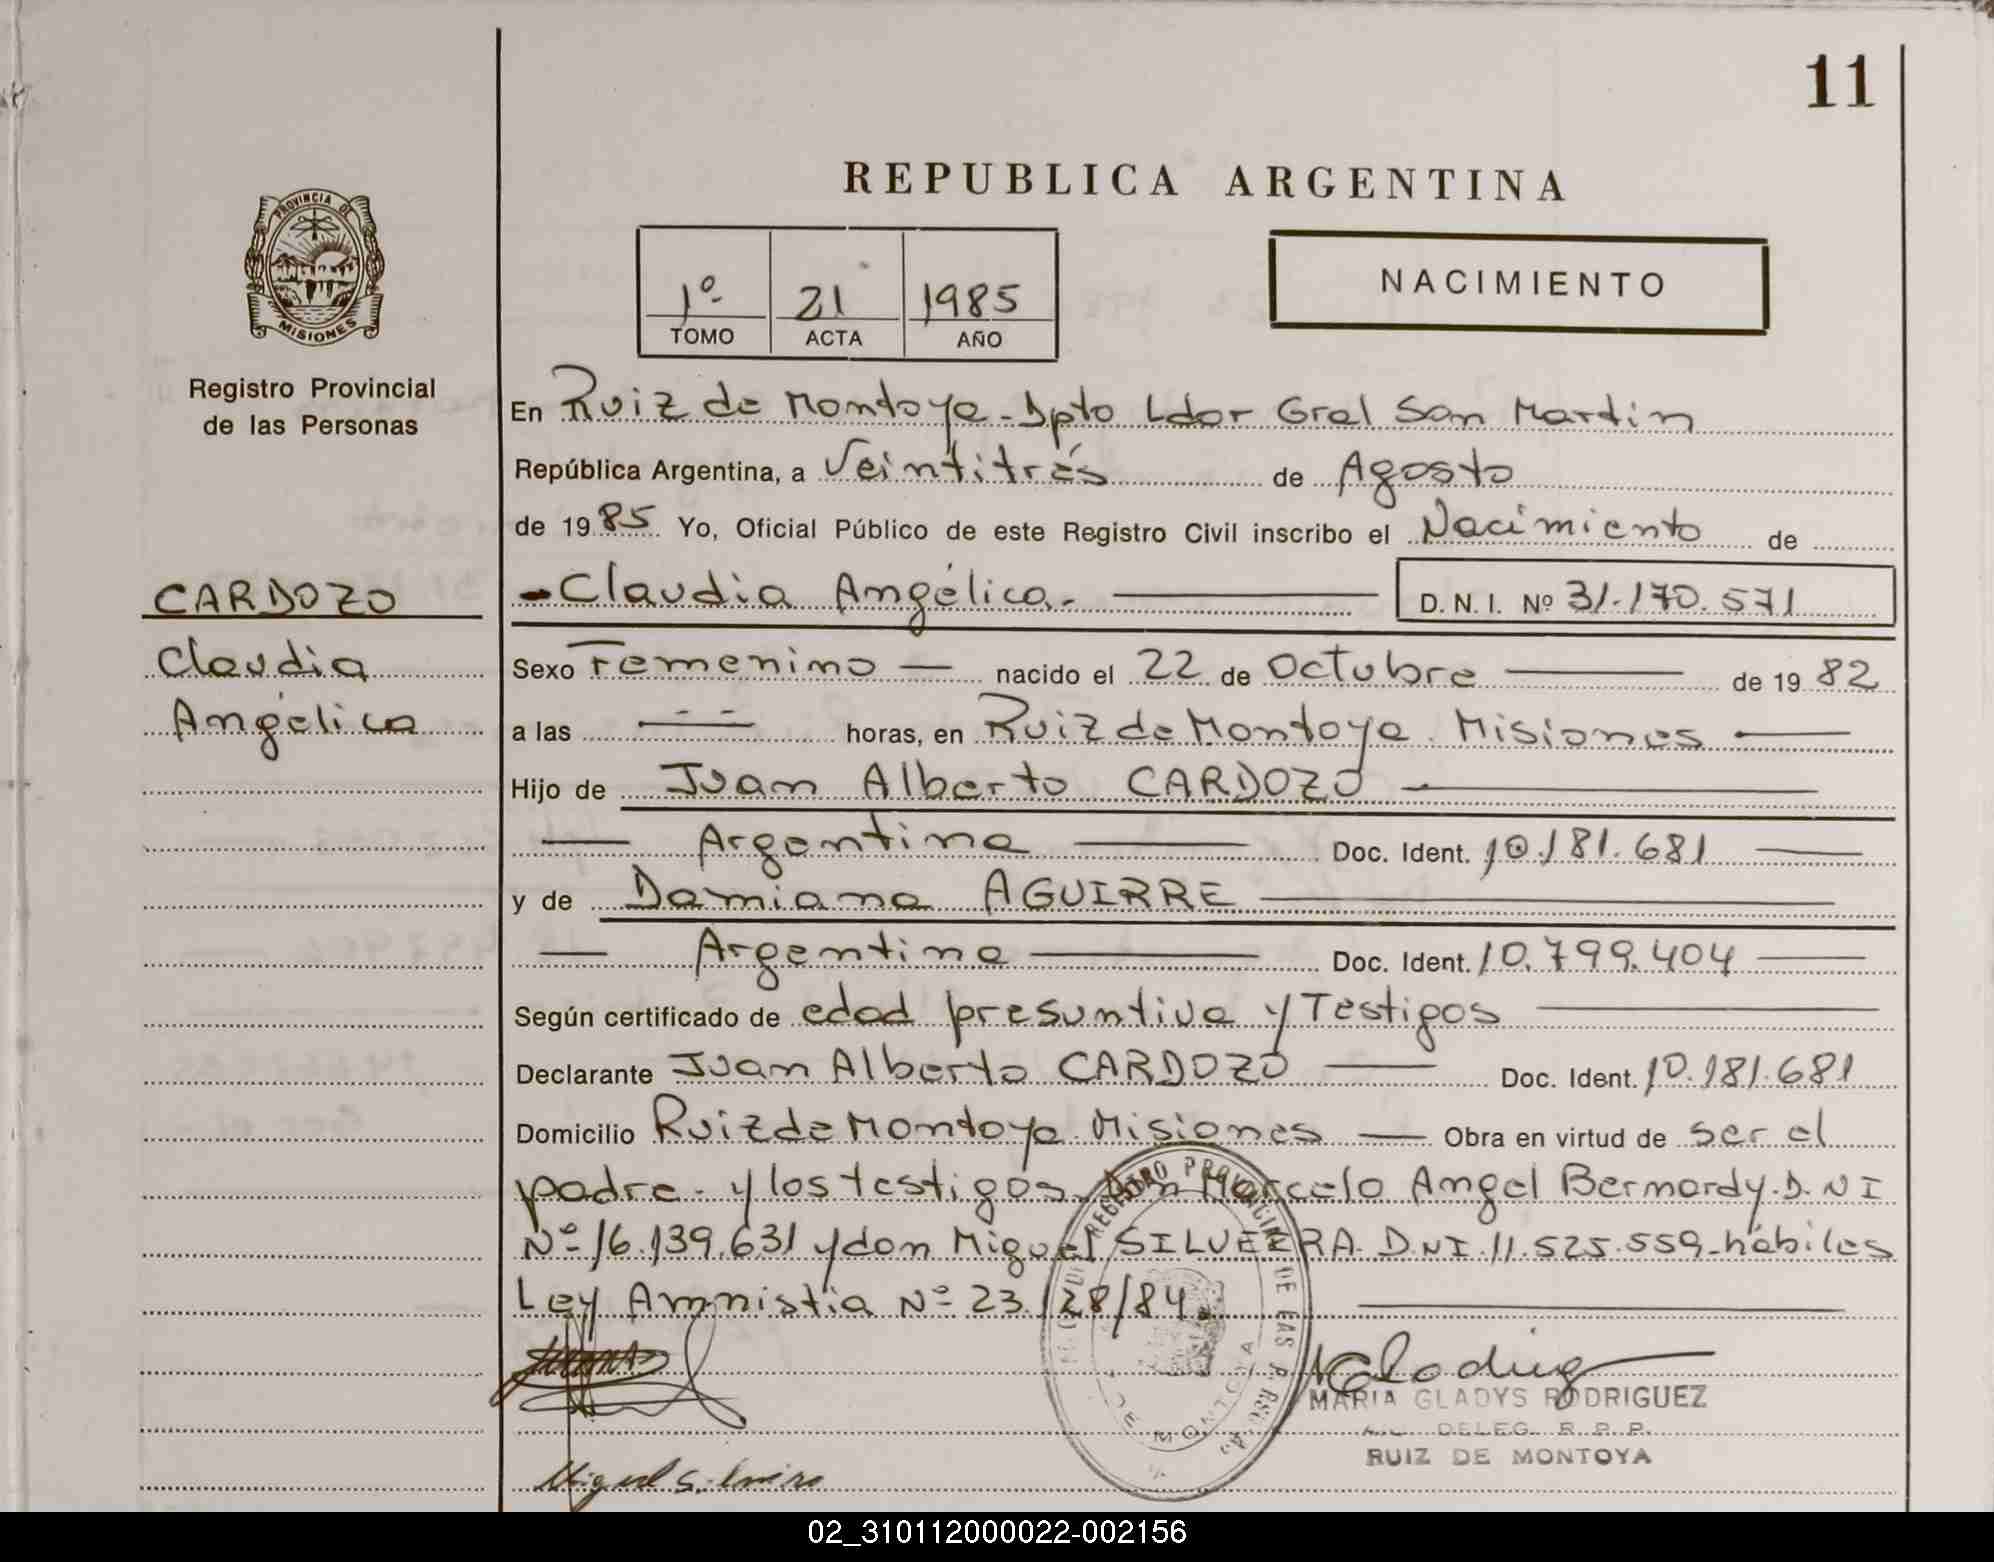 11
REPUBLICA ARGENTINA
PROVINCIA DE
MISIONES
Registro Provincial
de las Personas
1º 21 1985
TOMO ACTA AÑO
NACIMIENTO
En Ruiz de Montoya - Dpto Ldor Gral San Martin
República Argentina, a Veintitrés de Agosto
de 1985 Yo, Oficial Público de este Registro Civil inscribo el Nacimiento de
CARDOZO
Claudia
Angélica
- Claudia Angélica. - D. N. I. Nº 31.170.571
Sexo Femenino nacido el 22 de Octubre de 1982
a las - - horas, en Ruiz de Montoya. Misiones
Hijo de Juan Alberto CARDOZO
Argentina Doc. Ident. 10.181.681
y de Damiana AGUIRRE
Argentina Doc. Ident. 10.799.404
Según certificado de edad presuntiva y Testigos
Declarante Juan Alberto CARDOZO Doc. Ident. 10.181.681
Domicilio Ruiz de Montoya. Misiones Obra en virtud de ser el
padre - y los testigos Don Marcelo Angel Bernardy. D.N I
Nº 16.139.631 y don Miguel SILVEIRA. D.N I. 11.525.559 - hábiles
Ley Amnistia Nº 23.128/84.
REGISTRO PROVINCIAL DE LAS PERSONAS
DE MONTOYA
MARIA GLADYS RODRIGUEZ
DELEG. R. P. P.
RUIZ DE MONTOYA
Miguel Silveira
02_310112000022-002156